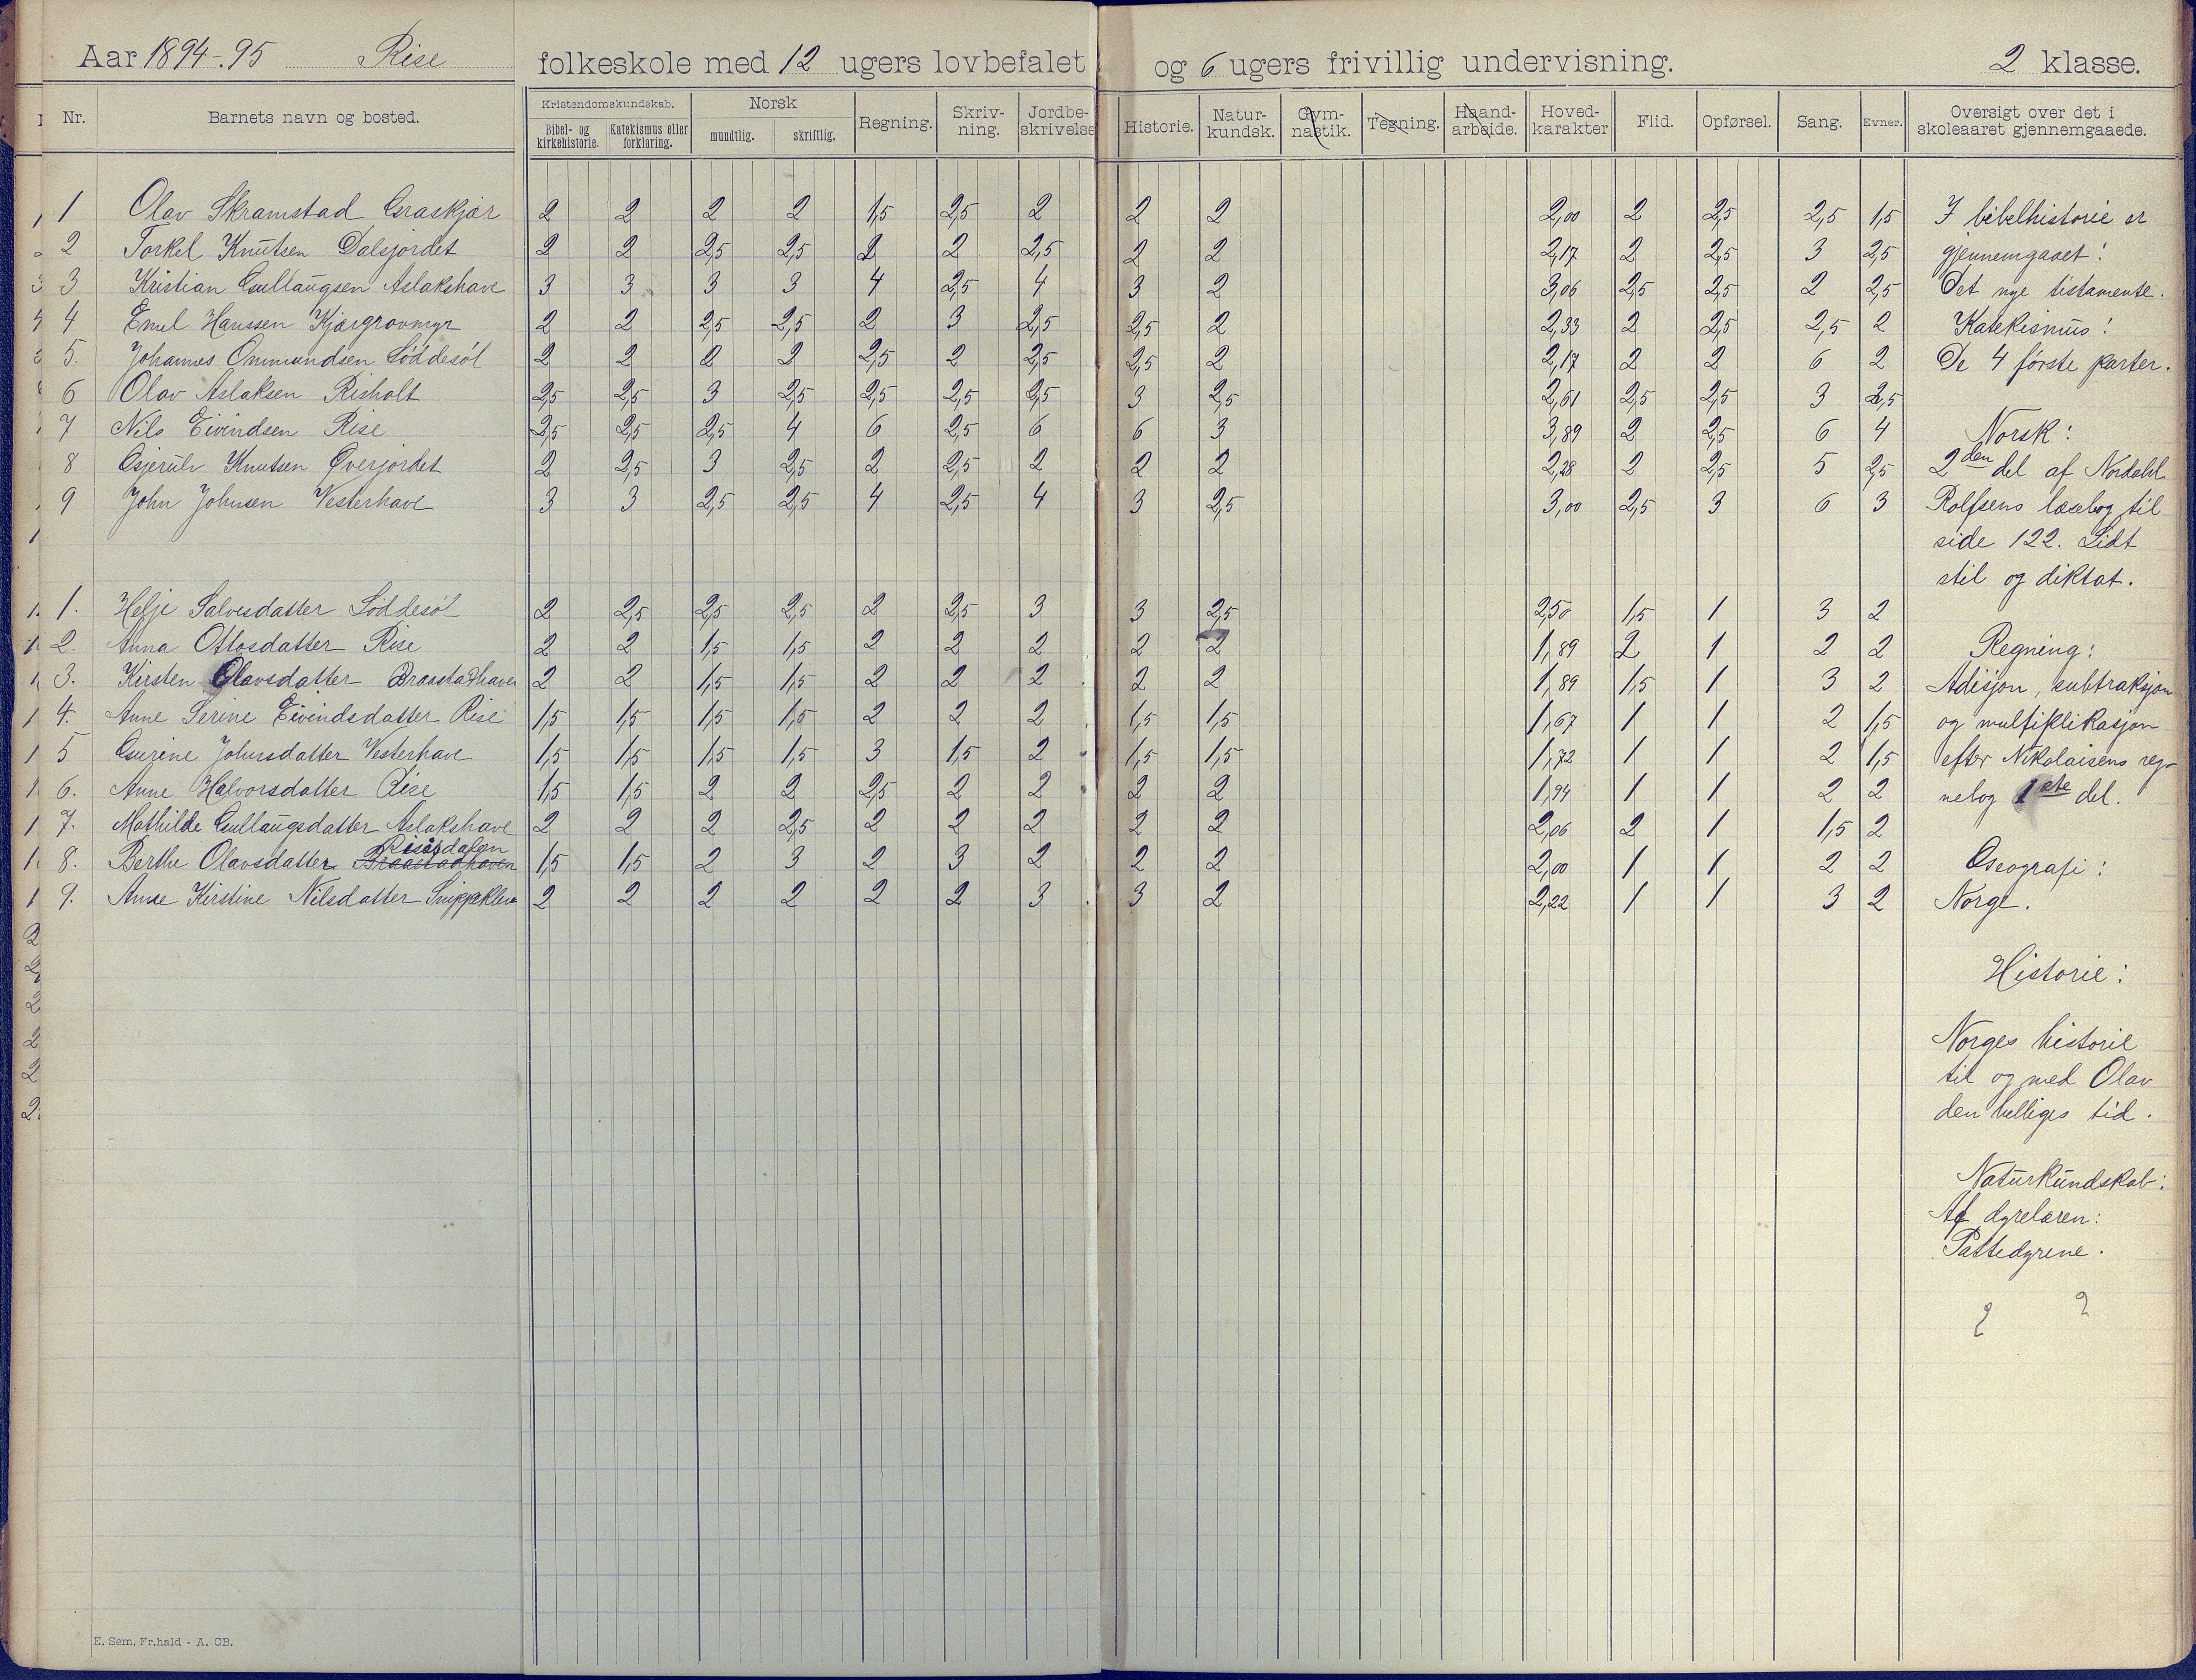 Aar 1894-95 Rise folkeskole med 12 ugers lovbefalet og 6 ugers frivillig undervisning. 2 klasse.
Nr. Barnets navn og bosted. Kristendomskundskab. Norsk Regning. Skriv-ning. Jordbe-skrivelse Historie. Natur-kundsk. Gym-nastik. Tegning. Haand-arbeide. Hoved-karakter Flid. Opførsel. Sang. Evner. Oversigt over det i skoleaaret gjennemgaaede.
Bibel- og kirkehistorie. Katekismus eller forklaring. mundtlig. skriftlig.
1 Olav Skramstad Graskjær 2 2 2 2 1,5 2,5 2 2 2 2,00 2 2,5 2,5 1,5 I bibelhistorie er
2 Torkel Knutsen Dalsjordet 2 2 2,5 2,5 2 2 2,5 2 2 2,17 2 2,5 3 2,5 gjennemgaaet:
3 Kristian Gullaugsen Aslakshave 3 3 3 3 4 2,5 4 3 2 3,06 2,5 2,5 2 2,5 Det nye testamente.
4 Emil Hanssen Kjærgrovmyr 2 2 2,5 2,5 2 3 2,5 2,5 2 2,33 2 2,5 2,5 2 Katekismus:
5. Johannes Ommundsen Løddesøl 2 2 2 2 2,5 2 2,5 2,5 2 2,17 2 2 6 2 De 4 første parter.
6 Olav Aslaksen Risholt 2,5 2,5 3 2,5 2,5 2,5 2,5 3 2,5 2,61 2,5 2,5 3 2,5
7 Nils Eivindsen Rise 2,5 2,5 2,5 4 6 2,5 6 6 3 3,89 2 2,5 6 4 Norsk:
8 Gjerulv Knutsen Øverjordet 2 2,5 3 2,5 2 2,5 2 2 2 2,28 2 2,5 5 2,5 2den del af Nordahl
9 John Johnsen Vesterhave 3 3 2,5 2,5 4 2,5 4 3 2,5 3,00 2,5 3 6 3 Rolfsens læsebog til
side 122. Lidt
stil og diktat.
1. Helje Salvesdatter Løddesøl 2 2,5 2,5 2,5 2 2,5 3 3 2,5 2,50 1,5 1 3 2
2. Anna Ottosdatter Rise 2 2 1,5 1,5 2 2 2 2 2 1,89 2 1 2 2 Regning:
3. Kirsten Olavsdatter Braastadhaven 2 2 1,5 1,5 2 2 2 2 2 1,89 1,5 1 3 2 Adisjon, subtraksjon
4. Anne Serine Eivindsdatter Rise 1,5 1,5 1,5 1,5 2 2 2 1,5 1,5 1,67 1 1 2 1,5 og multiplikasjon
5 Gurine Johnsdatter Vesterhave 1,5 1,5 1,5 1,5 3 1,5 2 1,5 1,5 1,72 1 1 2 1,5 efter Nikolaisens reg-
6. Anne Halvorsdatter Rise 1,5 1,5 2 2 2,5 2 2 2 2 1,94 1 1 2 2 nebog 1ste del.
7. Mathilde Gullaugsdatter Aslakshave 2 2 2 2,5 2 2 2 2 2 2,06 2 1 1,5 2
Risisdalen
8. Berthe Olavsdatter Braastadhaven 1,5 1,5 2 3 2 3 2 2 2 2,00 1 1 2 2 Geografi:
9. Anne Kirstine Nilsdatter 2 2 2 2 2 2 3 3 2 2,22 1 1 3 2 Norge.
Historie:
Norges historie
til og med Olav
den helliges tid.
Naturkundskab:
Af dyrelæren:
Pattedyrene.
E. Sem, Fr.hald - A. CB.